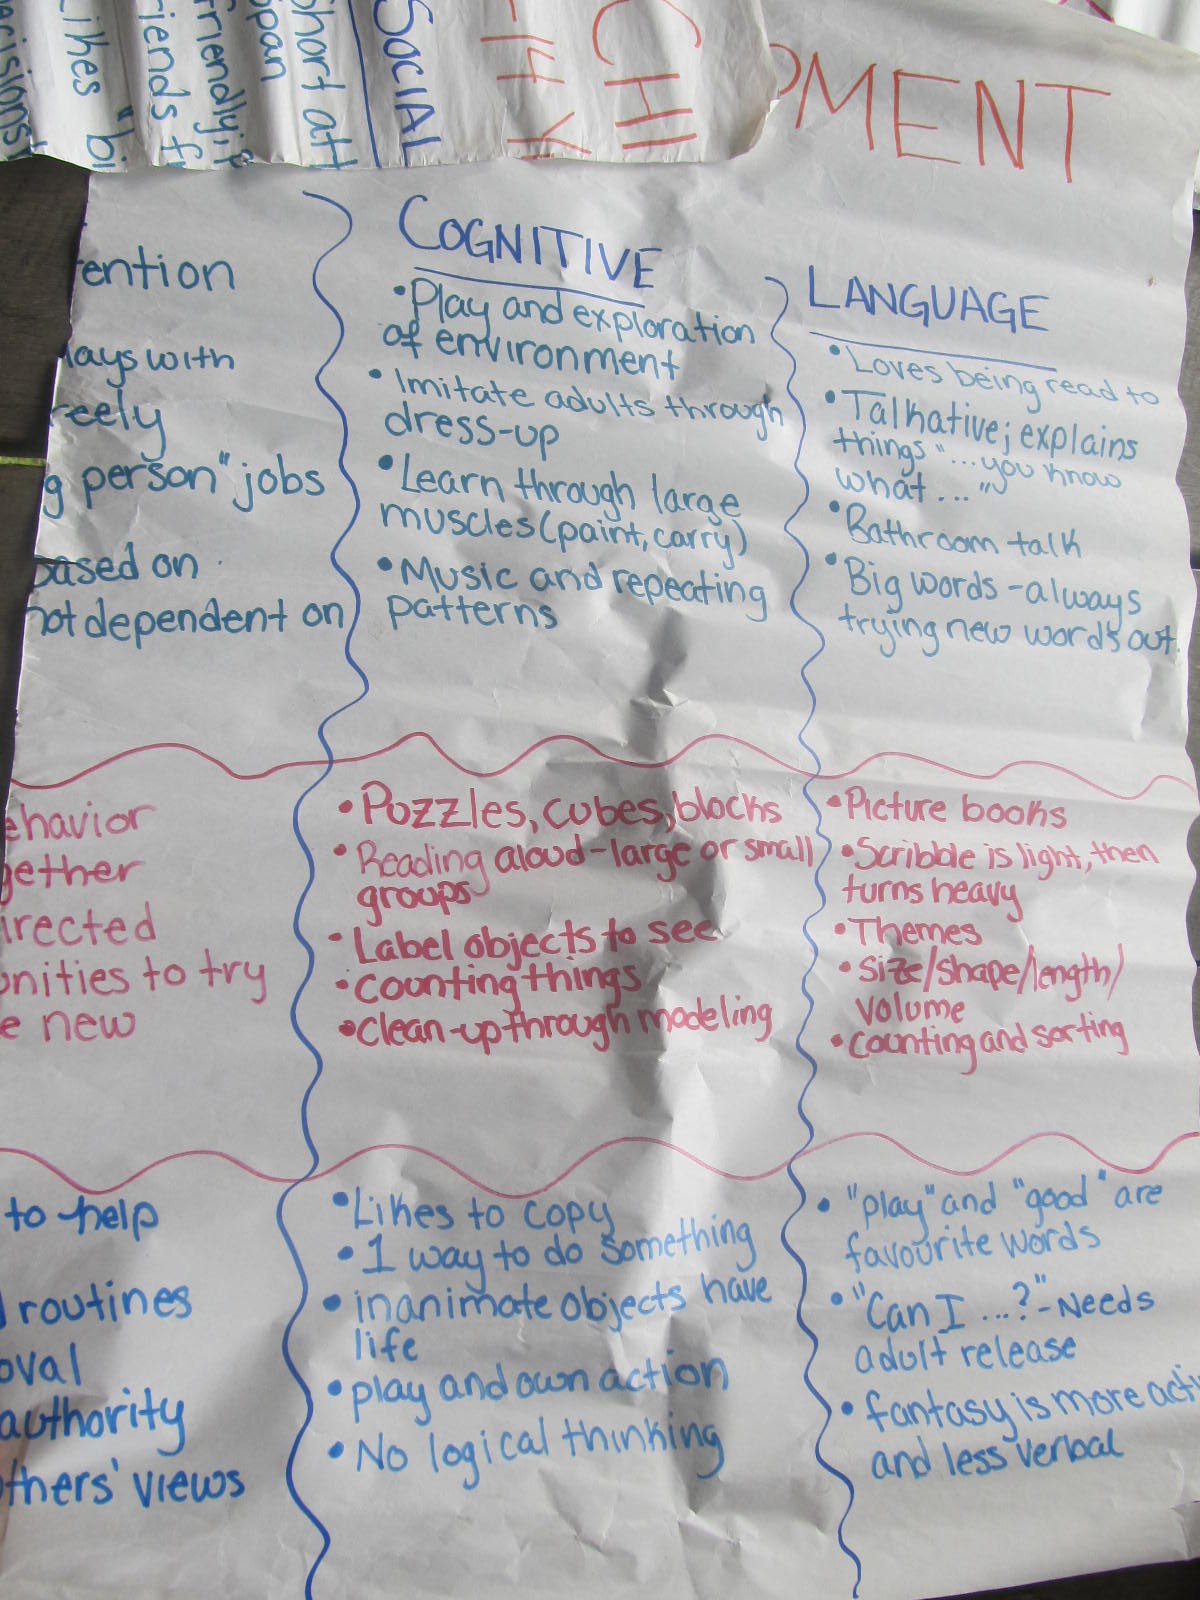 SOCIAL
Short att
span
friendly;
friends
Likes "bi
decisions
CHI
4
PMENT
ention
lays with
reely
g person" jobs
based on
not dependent on
COGNITIVE
•Play and exploration
of environment
•Imitate adults through
dress-up
•Learn through large
muscles (paint, carry)
•Music and repeating
patterns
LANGUAGE
•Loves being read to
•Talkative; explains
things "...you know
what..."
•Bathroom talk
•Big words - always
trying new words out.
ehavior
gether
irected
unities to try
e new
•Puzzles, cubes, blocks
•Reading aloud - large or small
groups
•Label objects to see
•counting things
•clean-up through modeling
•Picture books
•Scribble is light, then
turns heavy
•Themes
•Size/shape/length/
volume
•counting and sorting
to help
routines
oval
authority
others' views
•Likes to copy
•1 way to do something
•inanimate objects have
life
•play and own action
•No logical thinking
•"play" and "good" are
favourite words
•"Can I ...?" - Needs
adult release
•fantasy is more acti
and less verbal